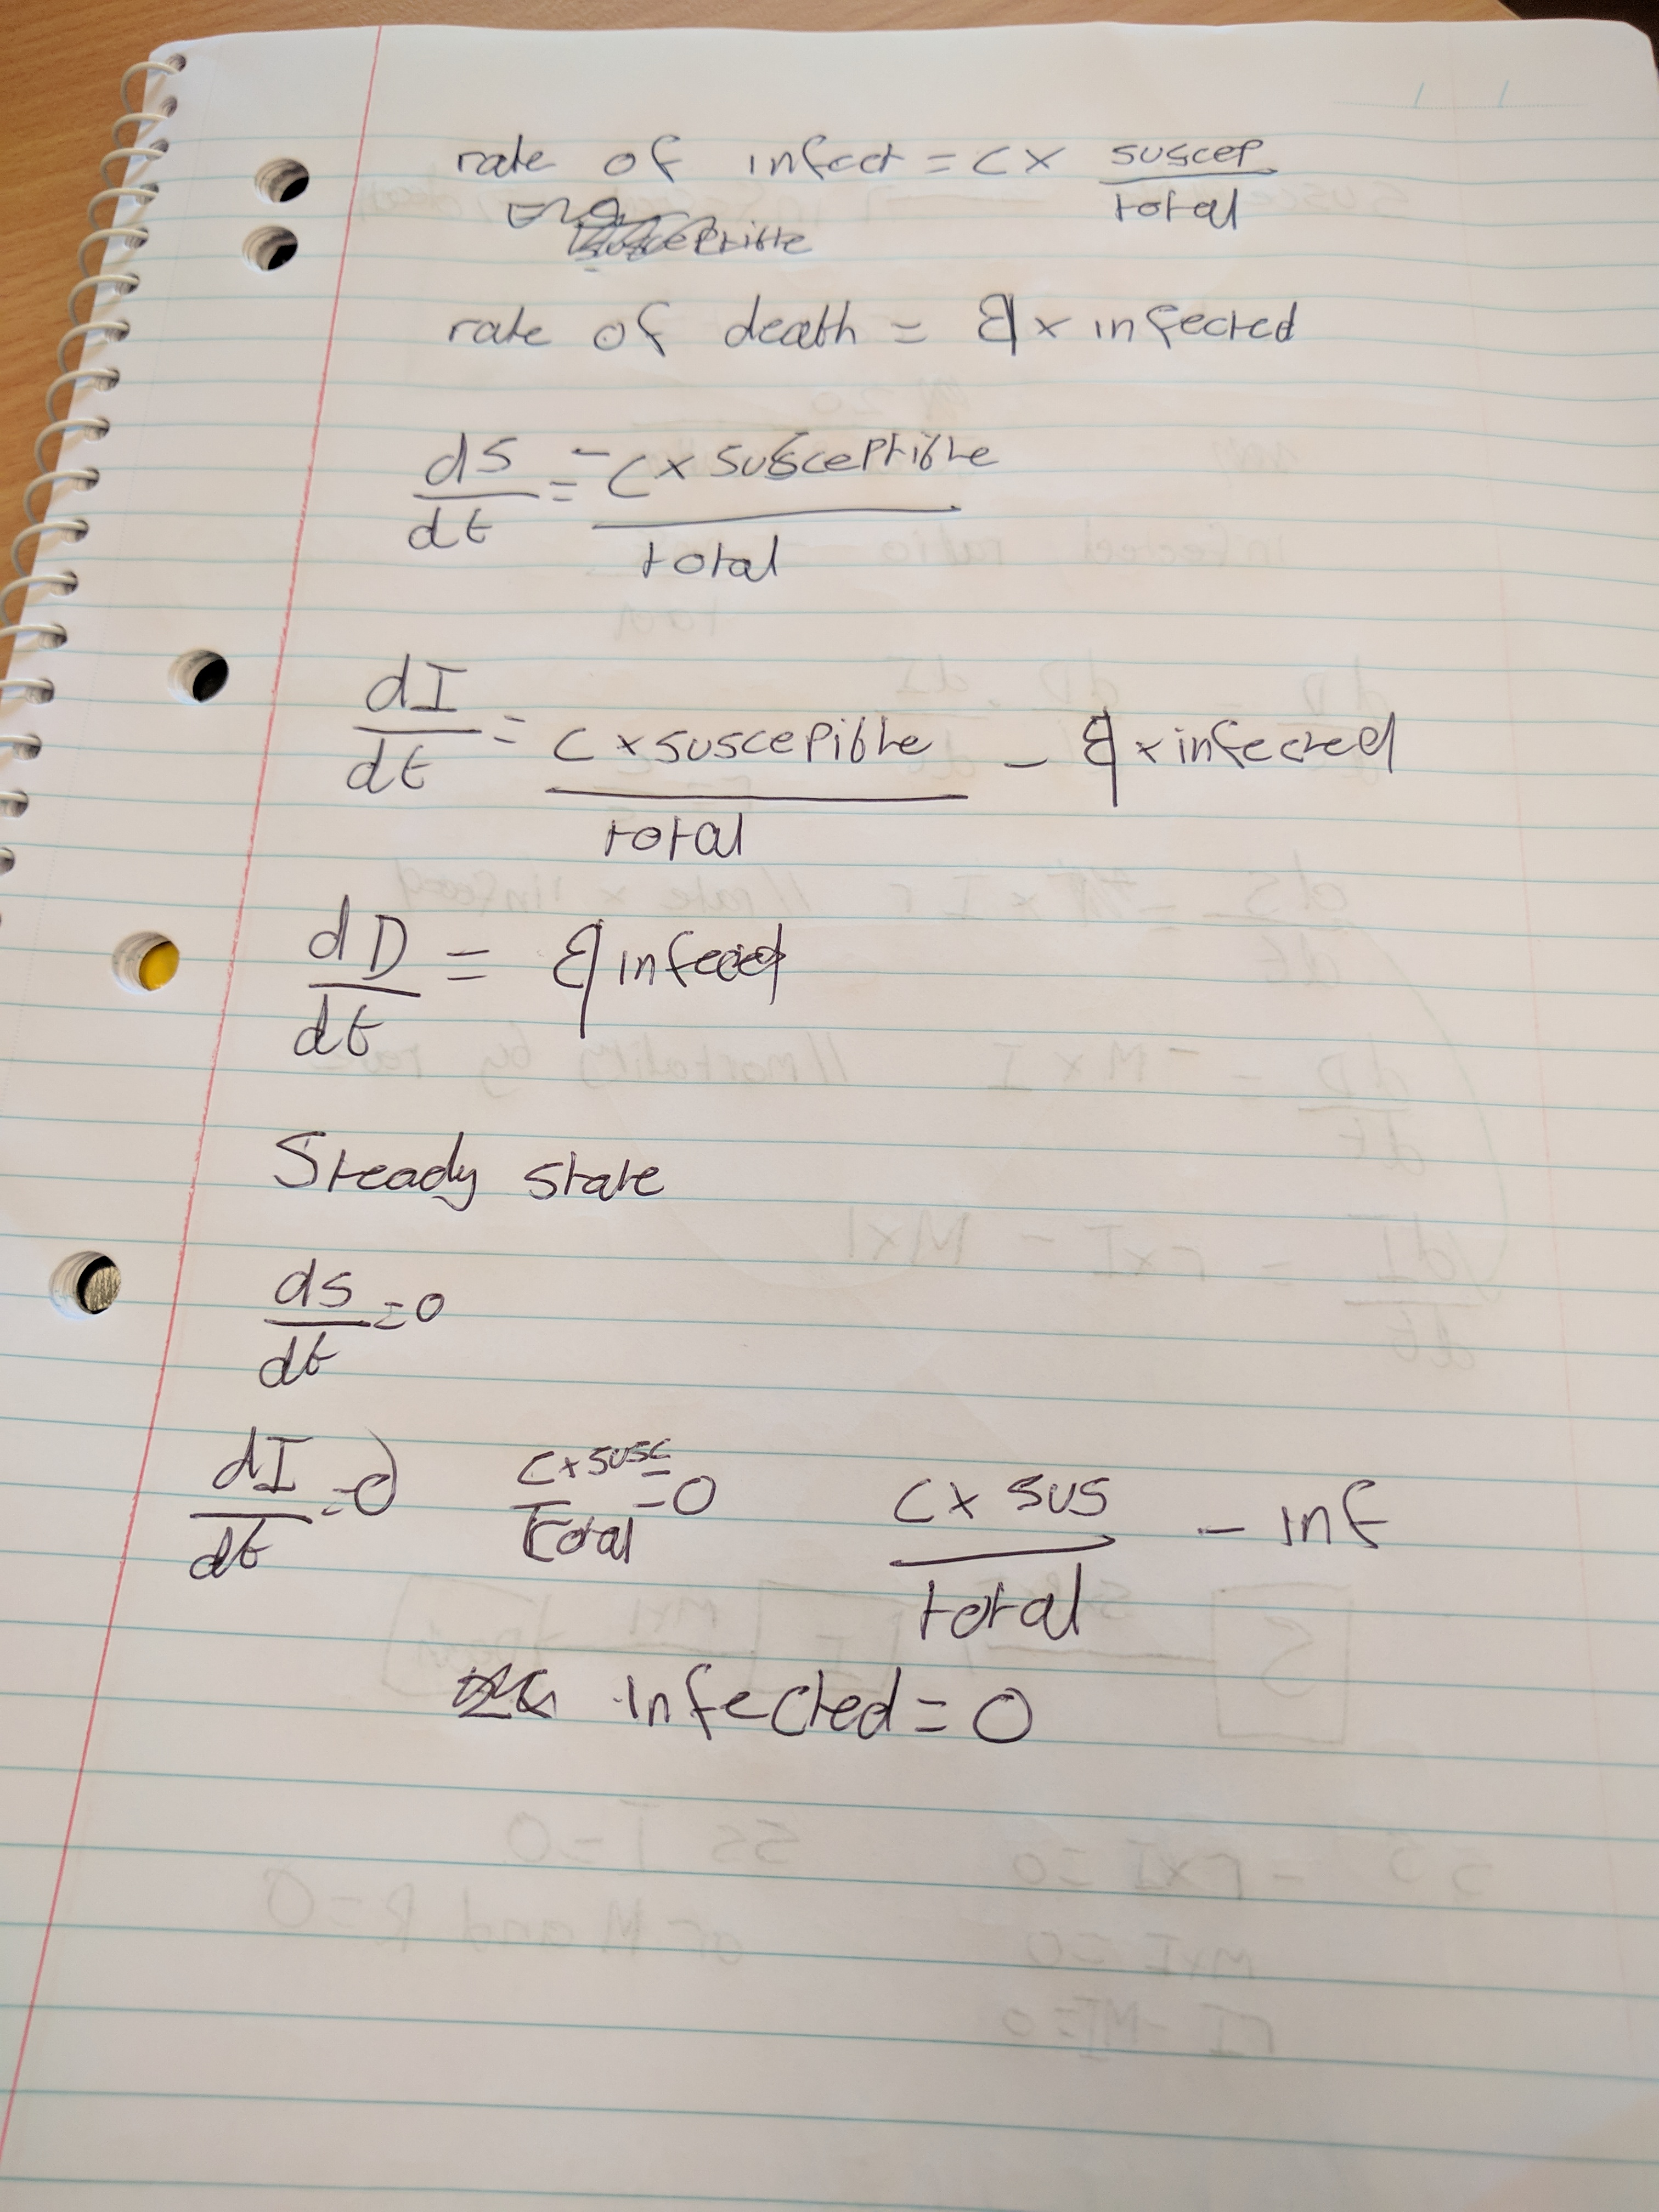 rate of infect = c x suscep / total
rate of death = q x infected
dS/dt = -c x susceptible / total
dI/dt = c x suscepible / total - q x infected
dD/dt = q infected
Steady state
ds/dt = 0
dI/dt = 0 c x susc / total = 0 c x sus / total - inf
infected = 0